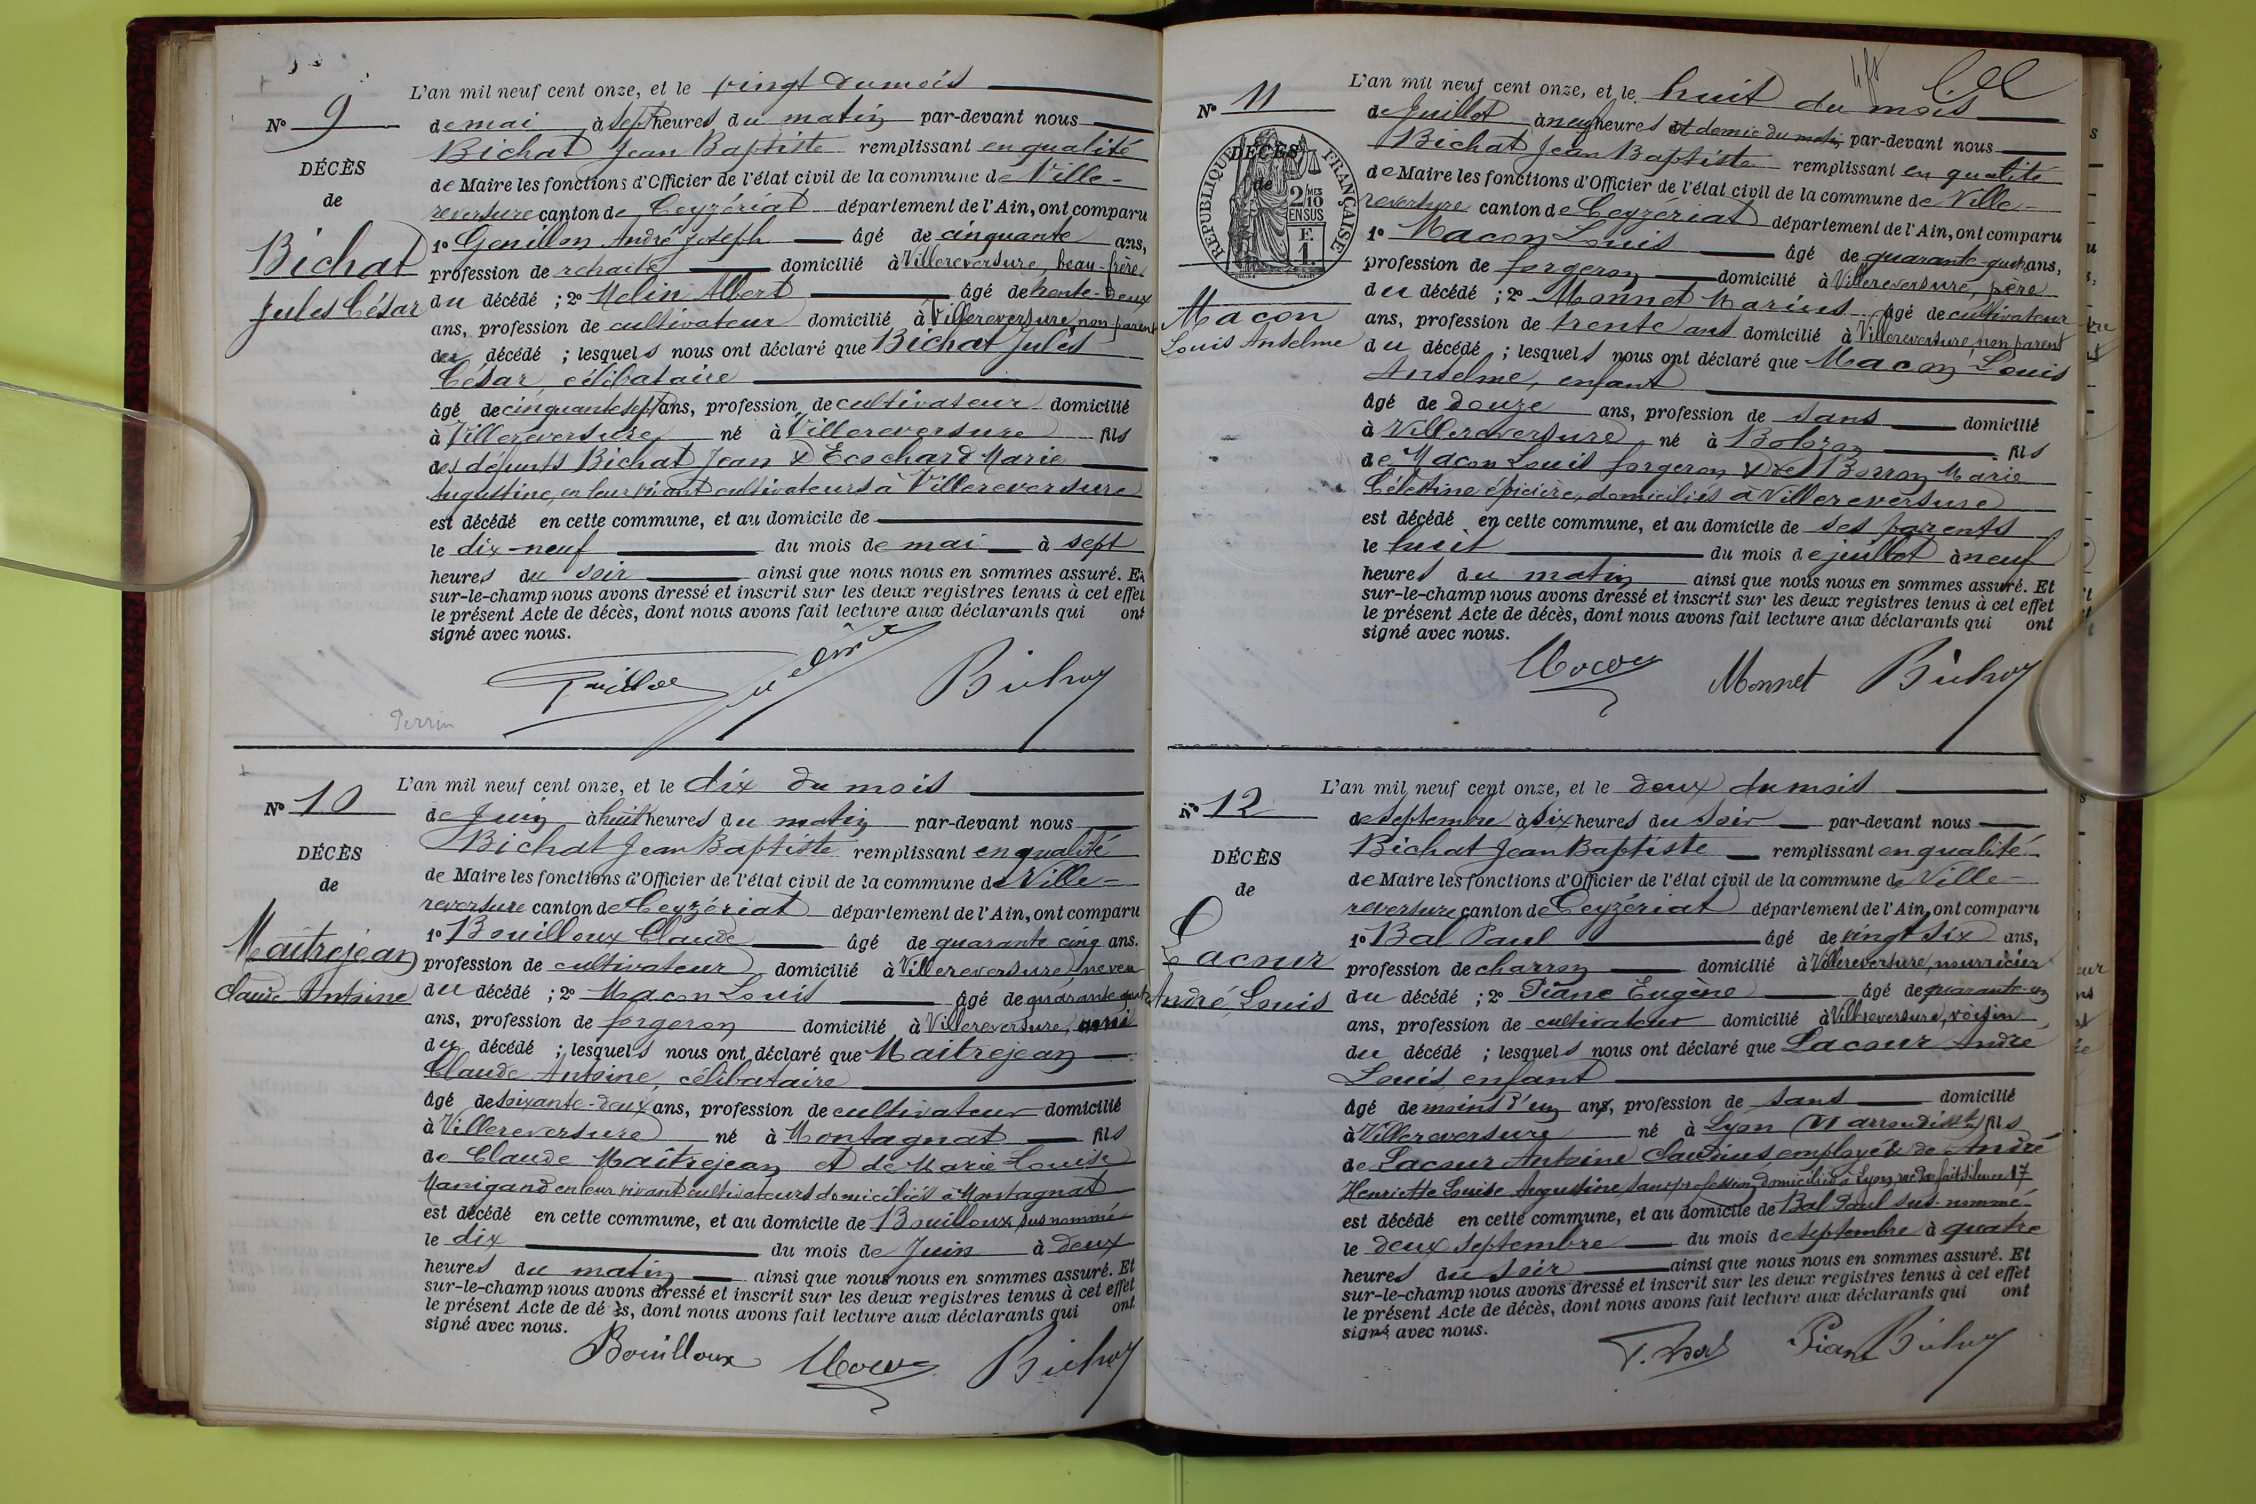 N° 9
DÉCÈS
de
Bichat
Jules César
L'an mil neuf cent onze, et le vingt du mois
de mai à sept heures du matin par-devant nous
Bichat Jean Baptiste remplissant en qualité
de Maire les fonctions d'Officier de l'état civil de la commune de Ville-
reversure canton de Ceyzériat département de l'Ain, ont comparu
1° Genillon André Joseph âgé de cinquante ans,
profession de retraité domicilié à Villereversure, beau-frère
du décédé ; 2° Melin Albert âgé de trente-deux
ans, profession de cultivateur domicilié à Villereversure, non parent
du décédé ; lesquels nous ont déclaré que Bichat Jules
César, célibataire
âgé de cinquante sept ans, profession de cultivateur domicilié
à Villereversure né à Villereversure fils
des défunts Bichat Jean & Ecochard Marie
Augustine, en leur vivant cultivateurs à Villereversure
est décédé en cette commune, et au domicile de
le dix-neuf du mois de mai à sept
heures du soir ainsi que nous nous en sommes assuré. Et
sur-le-champ nous avons dressé et inscrit sur les deux registres tenus à cet effet
le présent Acte de décès, dont nous avons fait lecture aux déclarants qui ont
signé avec nous.
Perrin
N° 10
DÉCÈS
de
Maîtrejean
Claude Antoine
L'an mil neuf cent onze, et le dix du mois
de Juin à huit heures du matin par-devant nous
Bichat Jean Baptiste remplissant en qualité
de Maire les fonctions d'Officier de l'état civil de la commune de Ville-
reversure canton de Ceyzériat département de l'Ain, ont comparu
1° Bouilloux Claude âgé de quarante cinq ans.
profession de cultivateur domicilié à Villereversure, neveu
du décédé ; 2° Macon Louis âgé de quarante quatre
ans, profession de forgeron domicilié à Villereversure, ami
du décédé ; lesquels nous ont déclaré que Maitrejean
Claude Antoine, célibataire
âgé de soixante-deux ans, profession de cultivateur domicilié
à Villereversure né à Montagnat fils
de Claude Maîtrejean et de Marie Louise
Manigand en leur vivant cultivateurs domiciliés à Montagnat
est décédé en cette commune, et au domicile de Bouilloux sus nommé
le dix du mois de Juin à deux
heures du matin ainsi que nous nous en sommes assuré. Et
sur-le-champ nous avons dressé et inscrit sur les deux registres tenus à cet effet
le présent Acte de décès, dont nous avons fait lecture aux déclarants qui ont
signé avec nous.
Bouilloux Macon Bichat
N° 11
RÉPUBLIQUE FRANÇAISE
2 MES 10 EN SUS
F. 1.
DÉCÈS
de
Macon
Louis Anselme
L'an mil neuf cent onze, et le huit du mois
de Juillet à neuf heures et demie du matin par-devant nous
Bichat Jean Baptiste remplissant en qualité
de Maire les fonctions d'Officier de l'état civil de la commune de Ville-
reversure canton de Ceyzériat département de l'Ain, ont comparu
1° Macon Louis âgé de quarante-quatre ans,
profession de forgeron domicilié à Villereversure, père
du décédé ; 2° Monnet Marius âgé de cultivateur
ans, profession de trente ans domicilié à Villereversure, non parent
du décédé ; lesquels nous ont déclaré que Macon Louis
Anselme, enfant
âgé de douze ans, profession de sans domicilié
à Villereversure né à Bolozon fils
de Macon Louis forgeron & de Borron Marie
Célestine épicière, domiciliés à Villereversure
est décédé en cette commune, et au domicile de ses parents
le huit du mois de juillet à neuf
heures du matin ainsi que nous nous en sommes assuré. Et
sur-le-champ nous avons dressé et inscrit sur les deux registres tenus à cet effet
le présent Acte de décès, dont nous avons fait lecture aux déclarants qui ont
signé avec nous.
Macon Monnet Bichat
N° 12
DÉCÈS
de
Lacour
André, Louis
L'an mil neuf cent onze, et le deux du mois
de septembre à six heures du soir par-devant nous
Bichat Jean Baptiste remplissant en qualité
de Maire les fonctions d'Officier de l'état civil de la commune de Ville-
reversure canton de Ceyzériat département de l'Ain, ont comparu
1° Bal Paul âgé de vingt six ans,
profession de charron domicilié à Villereversure, nourricier
du décédé ; 2° Piane Eugène âgé de quarante-un
ans, profession de cultivateur domicilié à Villereversure, voisin
du décédé ; lesquels nous ont déclaré que Lacour André
Louis, enfant
âgé de moins d'un an, profession de sans domicilié
à Villereversure né à Lyon (VI arrondisst) fils
de Lacour Antoine Claudius employé & de André
Henriette Louise Augustine, sans profession, domiciliés à Lyon 17
est décédé en cette commune, et au domicile de Bal Paul sus-nommé
le deux septembre du mois de septembre à quatre
heures du soir ainsi que nous nous en sommes assuré. Et
sur-le-champ nous avons dressé et inscrit sur les deux registres tenus à cet effet
le présent Acte de décès, dont nous avons fait lecture aux déclarants qui ont
signé avec nous.
P. Bal Piane Bichat